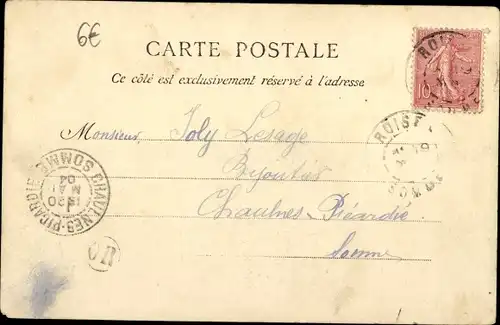 6€
CARTE POSTALE
Ce côté est exclusivement réservé à l'adresse
10
ROISEL
ROISEL
Monsieur Joly Lesage
Bijoutier
Chaulnes Picardie
Somme
CHAULNES-PICARDIE SOMME
1820
MAI
04